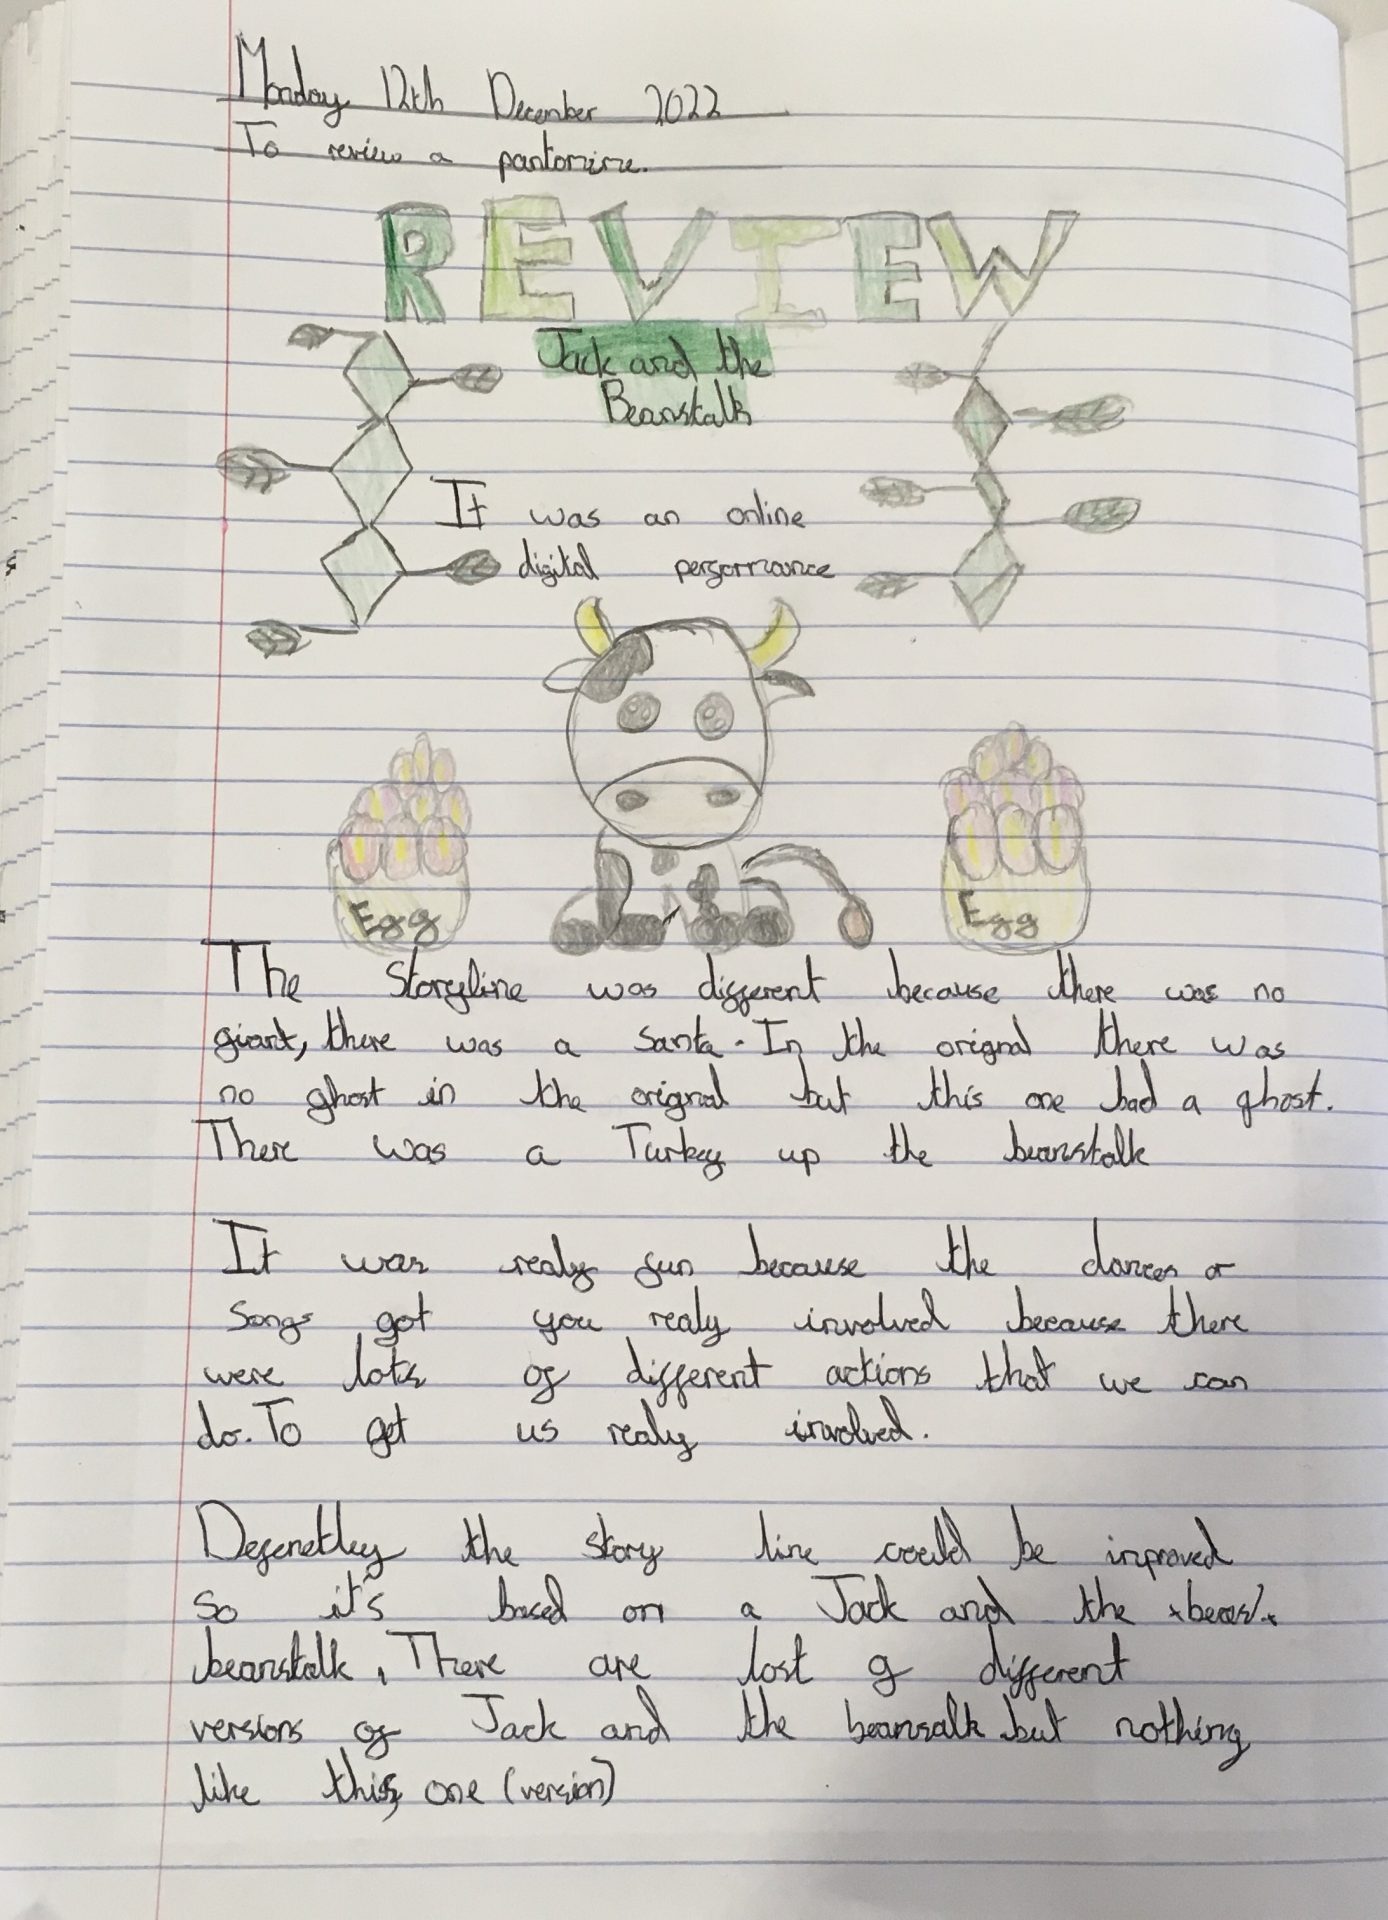 Monday 12th December 2022
To review a pantomime.
REVIEW
Jack and the
Beanstalk
It was an online
digital performance
Egg
Egg
The storyline was different because there was no
giant, there was a santa. In the orignal there was
no ghost in the orignal but this one had a ghost.
There was a Turkey up the beanstalk
It was realy fun because the dances or
songs got you realy involved because there
were lots of different actions that we can
do. To get us realy involved.
Defenetley the story line could be improved
so it's based on a Jack and the
beanstalk. There are lost of different
versions of Jack and the beansalk but nothing
like this, one (version)